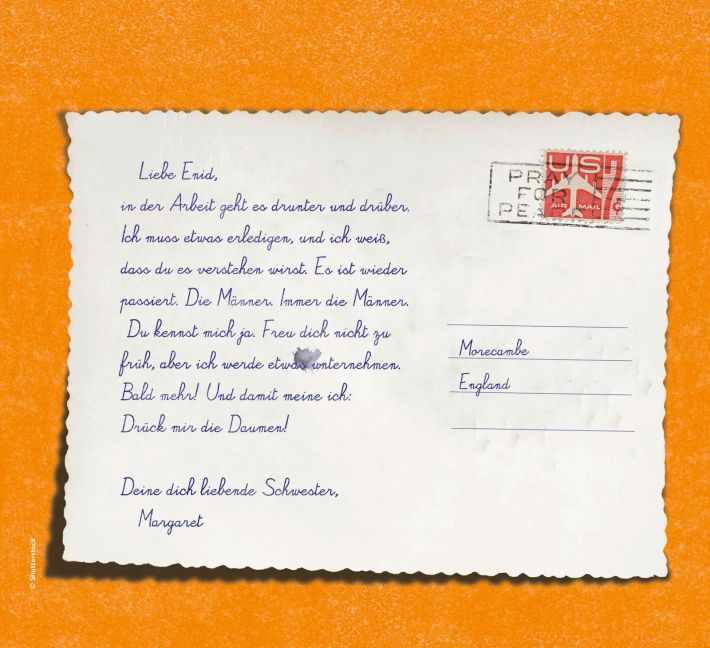 Liebe Enid,
in der Arbeit geht es drunter und drüber.
Ich muss etwas erledigen, und ich weiß,
dass du es verstehen wirst. Es ist wieder
passiert. Die Männer. Immer die Männer.
Du kennst mich ja. Freu dich nicht zu
früh, aber ich werde etwas unternehmen.
Bald mehr! Und damit meine ich:
Drück mir die Daumen!
Deine dich liebende Schwester,
Margaret
US
7
c
AIR MAIL
PRAY
FOR
Morecambe
England
© Shutterstock